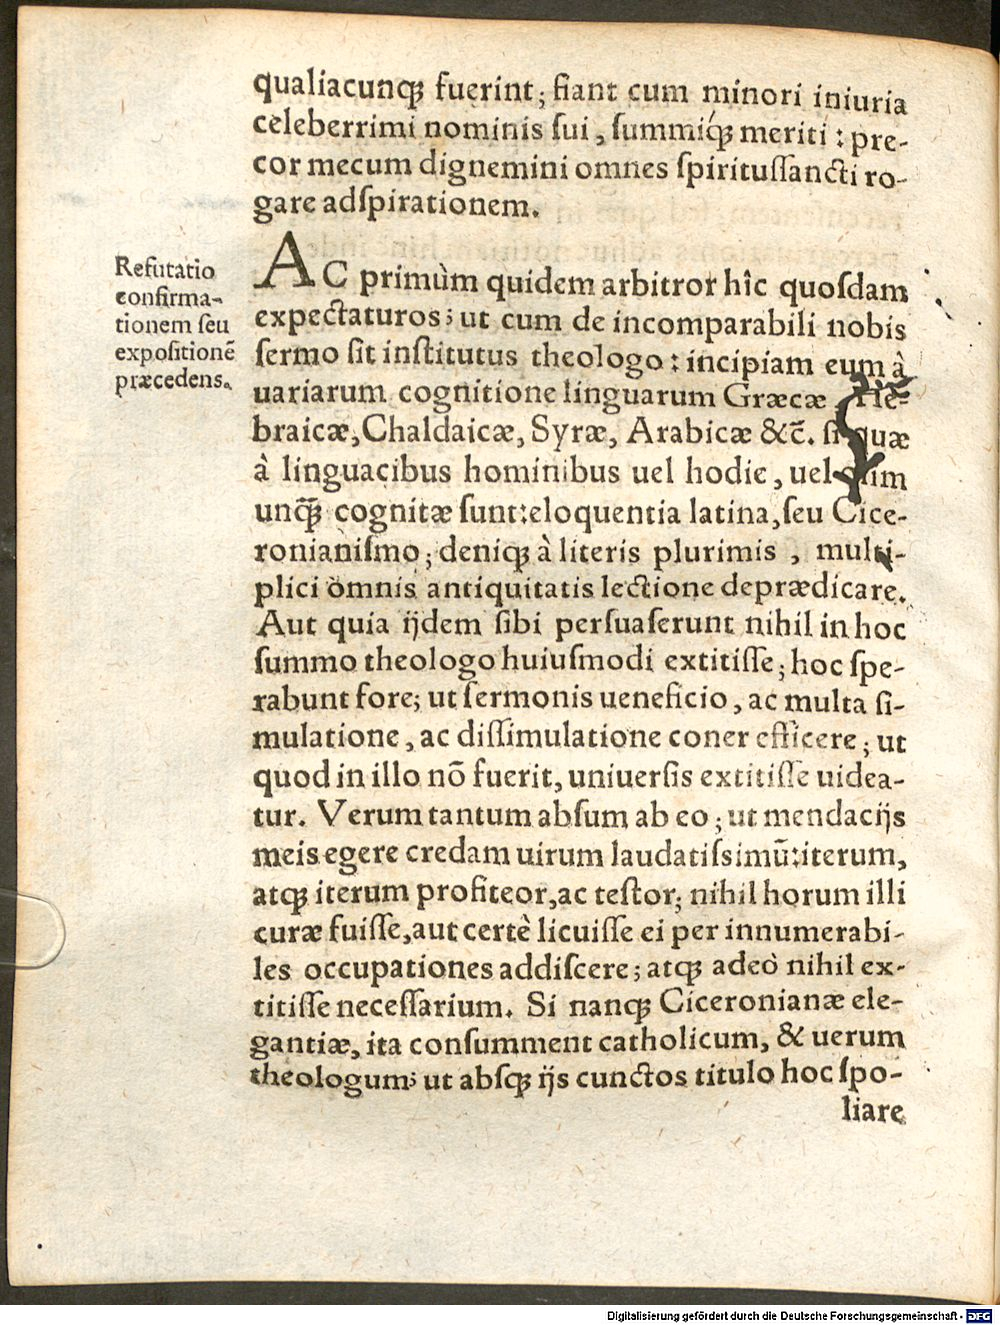 qualiacunqꝫ fuerint; fiant cum minori iniuria
celeberrimi nominis ſui, ſummiqꝫ meriti: pre-
cor mecum dignemini omnes ſpirituſſancti ro-
gare adſpirationem.
Refutatio
confirma-
tionem ſeu
expoſitionē
præcedens.
AC primùm quidem arbitror hîc quoſdam
expectaturos; ut cum de incomparabili nobis
ſermo ſit inſtitutus theologo: incipiam eum à
uariarum cognitione linguarum Græcæ, He-
braicæ, Chaldaicæ, Syræ, Arabicæ &c̄. ſi quæ
à linguacibus hominibus uel hodie, uel olim
unq̄ꝫ cognitæ ſunt: eloquentia latina, ſeu Cice-
ronianiſmo; deniqꝫ à literis plurimis, multi-
plici omnis antiquitatis lectione deprædicare.
Aut quia ijdem ſibi perſuaſerunt nihil in hoc
ſummo theologo huiuſmodi extitiſſe; hoc ſpe-
rabunt fore; ut ſermonis ueneficio, ac multa ſi-
mulatione, ac diſſimulatione coner efficere; ut
quod in illo nō fuerit, uniuerſis extitiſſe uidea-
tur. Verum tantum abſum ab eo; ut mendacijs
meis egere credam uirum laudatiſsimū: iterum,
atqꝫ iterum profiteor, ac teſtor; nihil horum illi
curæ fuiſſe, aut certè licuiſſe ei per innumerabi-
les occupationes addiſcere; atqꝫ adeò nihil ex-
titiſſe neceſſarium. Si nanqꝫ Ciceronianæ ele-
gantiæ, ita conſumment catholicum, & uerum
theologum; ut abſqꝫ ijs cunctos titulo hoc ſpo-
liare
Digitalisierung gefördert durch die Deutsche Forschungsgemeinschaft - DFG